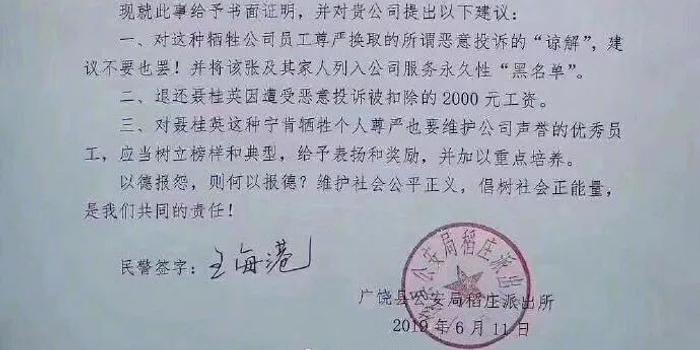 现就此事给予书面证明，并对贵公司提出以下建议：
一、对这种牺牲公司员工尊严换取的所谓恶意投诉的“谅解”，建
议不要也罢！并将该张及其家人列入公司服务永久性“黑名单”。
二、退还聂桂英因遭受恶意投诉被扣除的2000元工资。
三、对聂桂英这种宁肯牺牲个人尊严也要维护公司声誉的优秀员
工，应当树立榜样和典型，给予表扬和奖励，并加以重点培养。
以德报怨，则何以报德？维护社会公平正义，倡树社会正能量，
是我们共同的责任！
民警签字：王海港
广饶县公安局稻庄派出所
2019年6月11日
公安局稻庄派出